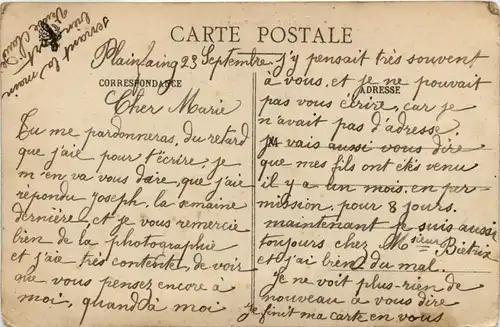 CARTE POSTALE
CORRESPONDANCE
ADRESSE
Plainfaing 23 Septembre
Cher Marie
Tu me pardonneras, du retard
que j'aie pour t'écrire; je
m'en va vous dire, que j'aie
répondu Joseph, la semaine
dernière, et je vous remercie
bien de la photographie
et j'aie très contente, de voir
que vous pensez encore à
moi, quand à moi
j'y pensait très souvent
à vous, et je ne pouvait
pas vous écrire, car je
n'avait pas d'adresse
je vais aussi vous dire
que mes fils ont étés venu
il y a un mois, en per-
mission, pour 8 jours.
maintenant je suis aussi
toujours chez Msieur Biétrix
et j'ai bien du mal.
Je ne voit plus rien de
nouveau à vous dire
je finit ma carte en vous
serrant la main